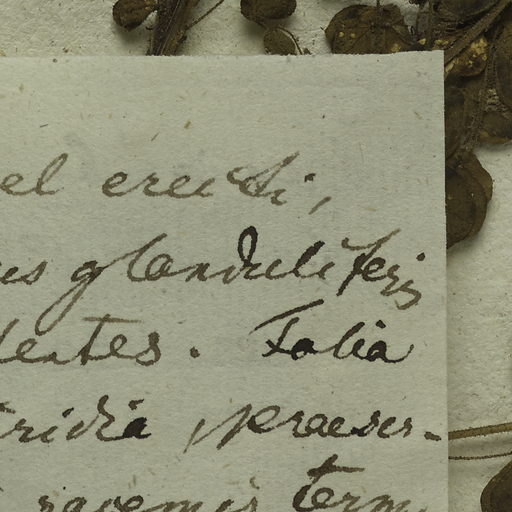 el erecti,
us glanduliferis
dentes. Folia
iridia, praeser-
racemis term